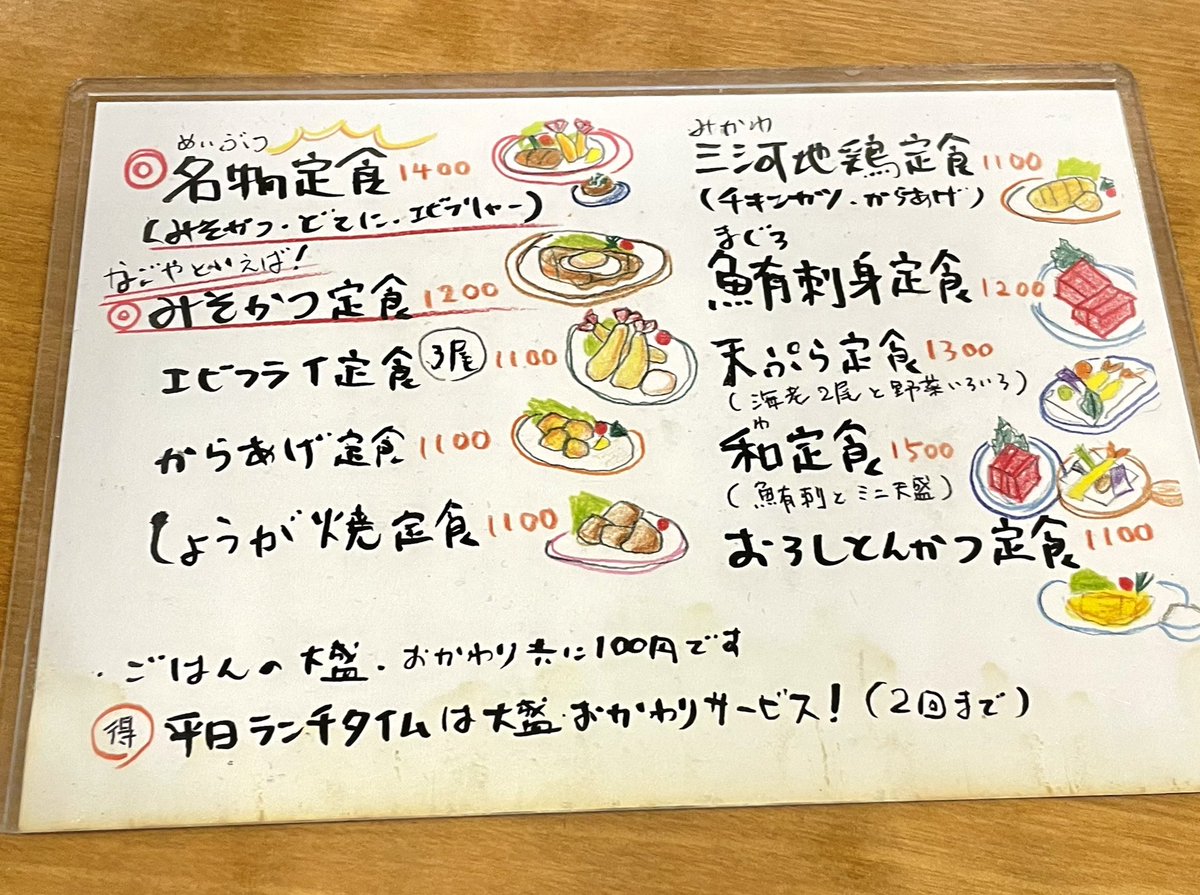 めいぶつ
◎ 名物定食 1400
(みそかつ・どてに・エビフリャー)
なごやといえば!
◎ みそかつ定食 1200
エビフライ定食 3尾 1100
からあげ定食 1100
しょうが焼定食 1100
みかわ
三河地鶏定食 1100
(チキンカツ・からあげ)
まぐろ
鮪刺身定食 1200
天ぷら定食 1300
(海老2尾と野菜いろいろ)
わ
和定食 1500
(鮪刺とミニ天盛)
おろしとんかつ定食 1100
・ごはんの大盛・おかわり共に100円です
得 平日ランチタイムは大盛・おかわりサービス!(2回まで)